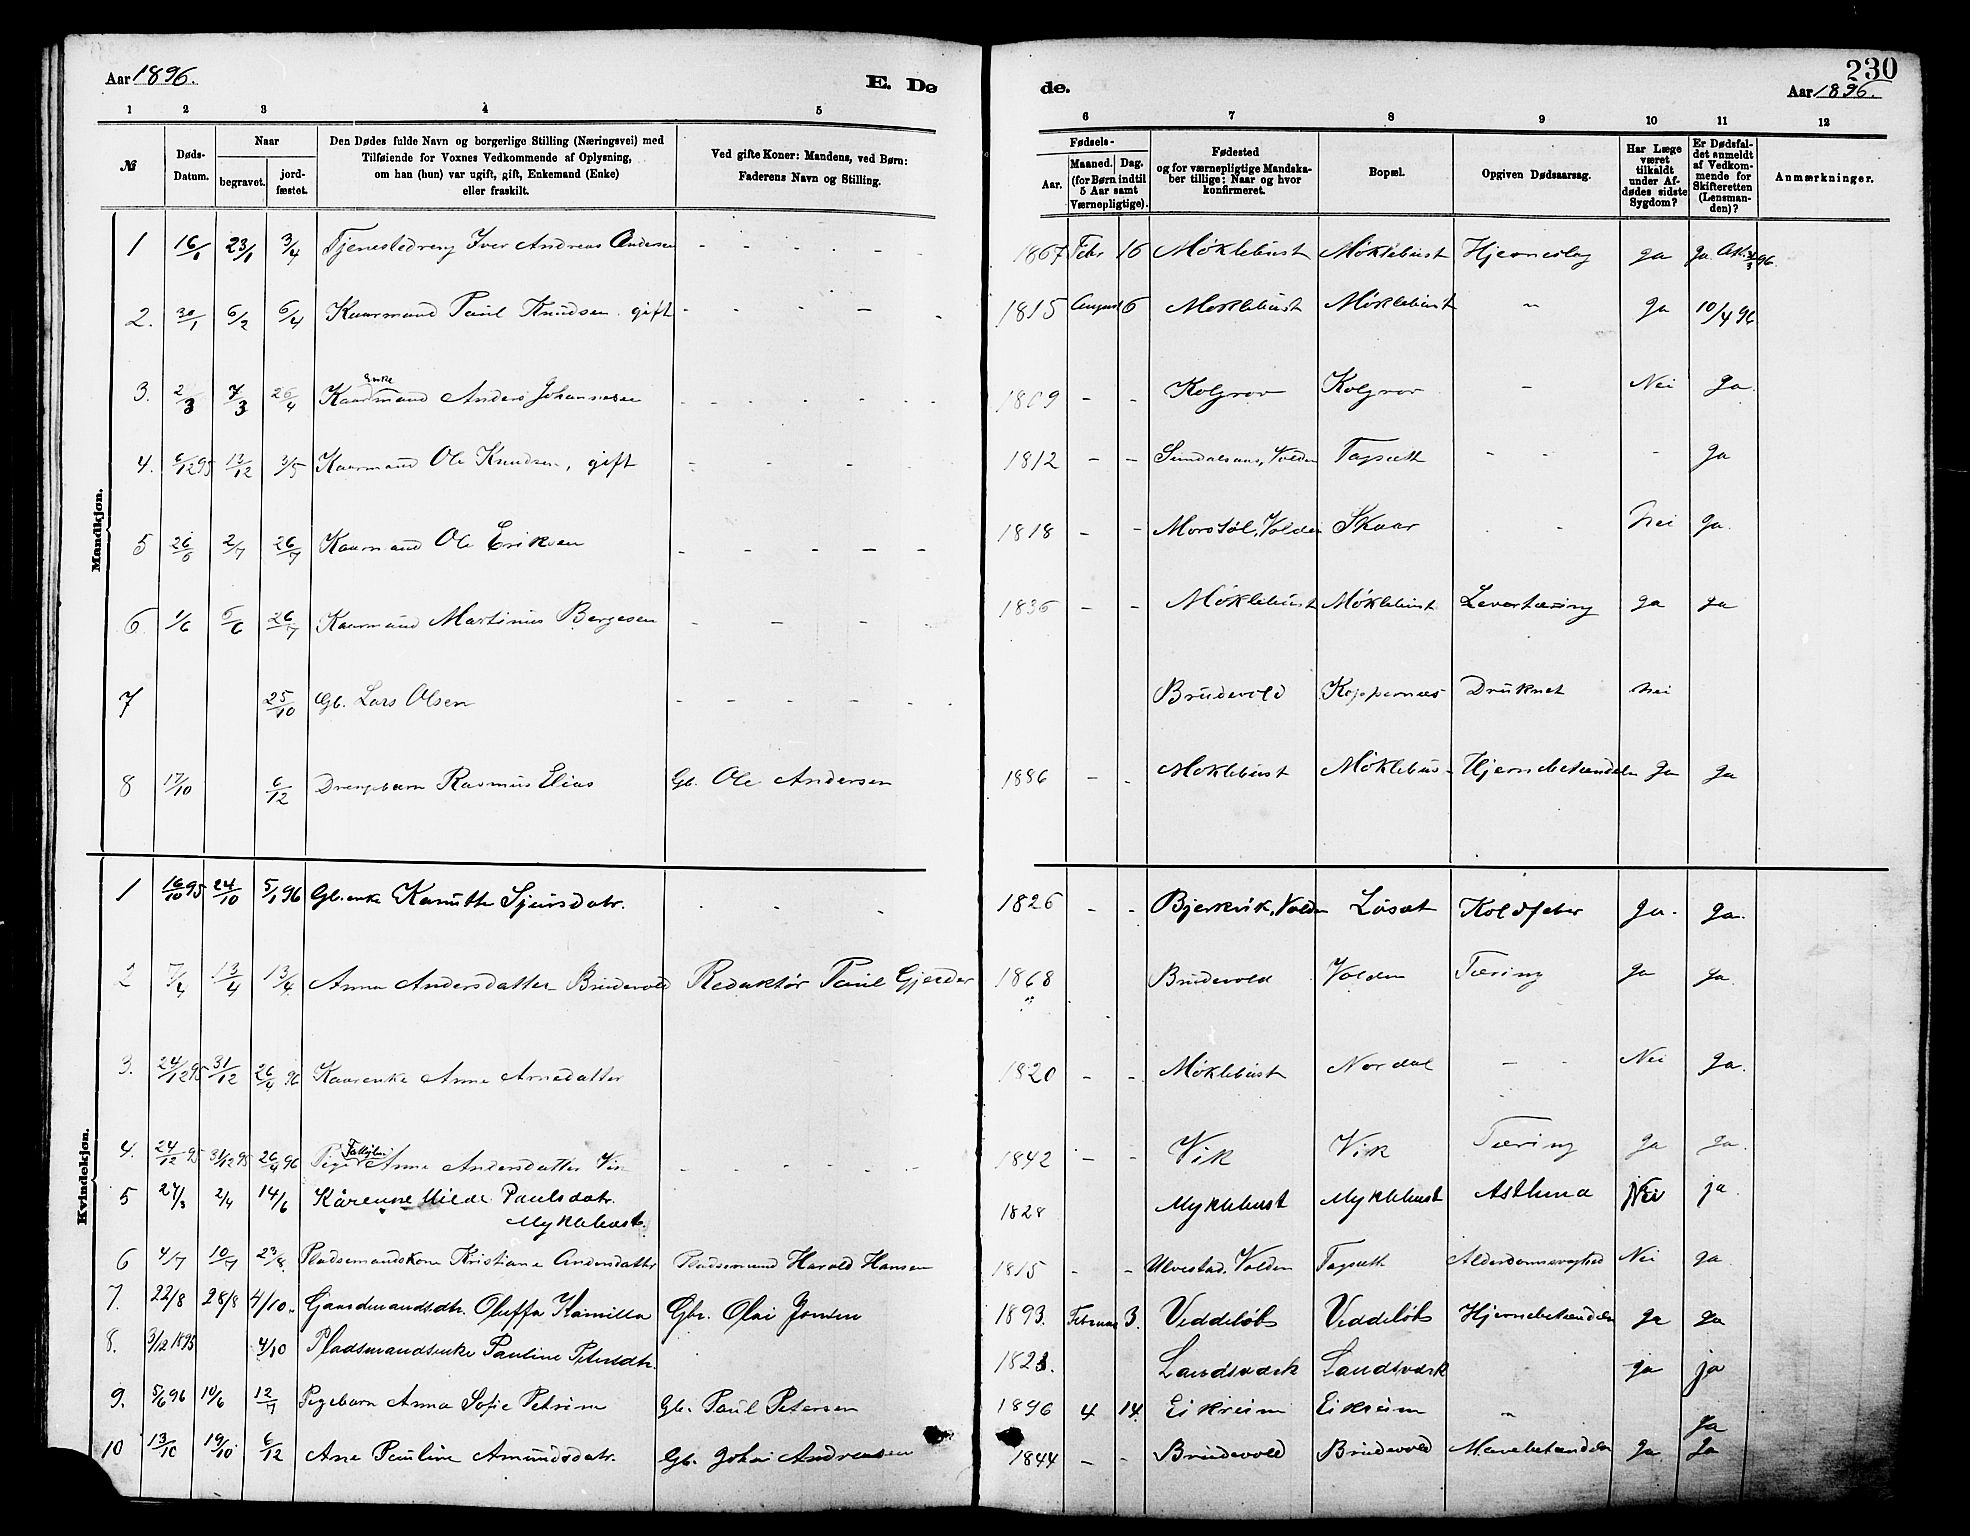 Aar 1896.
E. De
de.
230
Aar 1896.
1 2 3 4 5 6 7 8 9 10 11 12
№
Døds-Datum.
Naar
begravet.
jord-fæstet.
Den Dødes fulde Navn og borgerlige Stilling (Næringsvei) med
Tilføiende for Voxnes Vedkommende af Oplysning,
om han (hun) var ugift, gift, Enkemand (Enke)
eller fraskilt.
Ved gifte Koner: Mandens, ved Børn:
Faderens Navn og Stilling.
Fødsels-
Aar.
Maaned. Dag.
(for Børn indtil
5 Aar samt
Værnepligtige).
Fødested
og for værnepligtige Mandska-
ber tillige: Naar og hvor
konfirmeret.
Bopæl.
Opgiven Dødsaarsag.
Har Læge
været
tilkaldt
under Af-
dødes sidste
Sygdom?
Er Dødsfal-
det anmeldt
af Vedkom-
mende for
Skifteretten
(Lensman-
den)?
Anmærkninger.
Mandkjøn.
1 16/1 23/1 3/4 Tjenestedreng Iver Andreas Andersen - - - - - 1867 Febr 16 Møklebust Møklebust Hjerneslag ja ja
2. 30/1 6/2 6/4 Kaarmand Paul Knudsen. gift - - - - - 1815 August 6 Møklebust Møklebust " Ja 10/4 96
3. 2/3 7/3 26/4 Kaarmand Enke Anders Johannesen - - - - - - 1809 - - Kolgrov Kolgrov - Nei Ja.
4. 6/12 95 13/12 3/5 Kaarmand Ole Knudsen, gift - - - - 1812 - - Sundalsaas, Volden Tagseth - - - Ja
5 26/5 2/7 26/7 Kaarmand Ole Eriksen - - - - - 1818 - - Morstøl, Volden Skaar - - Nei Ja.
6 1/6 6/6 26/7 Kaarmand Martinus Bergesen - - - - 1836 - - Møklebust Møklebust Levertæring ja ja
7 25/10 Gb. Lars Olsen - - - - - - Brudevold Koppernæs Druknet Nei
8 17/10 6/12 Drengebarn Rasmus Elias Gb. Ole Andersen 1896 - - Møklebust Møklebus - Hjernebetændelse Ja Ja
Kvindekjøn.
1 16/10 95 24/10 5/1 96 Gb.enke Kanutte Sjursdatr. - - - 1826 - - Bjerkvik, Volden Løset Koldfeber Ja. Ja.
2 7/4 13/4 13/4 Anna Andersdatter Brudevold Redaktør Paul Gjerder 1868 Brudevold Volden Tæring Ja Ja.
3. 24/12 95 31/12 26/4 96 Kaarenke Anne Arnedatter 1820 - - Møklebust Nordal - Nei Ja.
4. 24/12 95 31/12 95 26/4 96 Pige Anne Andersdatter Vik - - - - - 1842 - - Vik Vik Tæring Ja Ja.
5 27/3 2/4 14/6 Karenne Milde Paulsdatr. 1828 Myklebust Myklebust Asthma Nei ja.
Myklebust.
6 4/7 10/7 23/8 Pladsemandskone Kristiane Andersdatter Pladsemand Harald Hansen 1815 - - Ulvestad, Volden Tagseth Alderdomssvaghed Nei Ja.
7. 22/8 28/8 4/10 Gaardmandsdtr. Oluffa Kamilla Gbr. Olai Jonsen 1893. Februar 3. Veddeløb Veddeløb Hjernebetændelse Ja Ja
8. 3/12 1895 4/10 Pladsmandsenke Pauline Petersdtr. 1823. Landsværk Landsværk ja ja
9. 5/6 96 10/6 12/7 Pigebarn Anna Sofie Petrine Gbr. Paul Petersen 1896 4 14. Eikreim Eikreim " Ja
10 13/10 19/10 6/12 Ane Pauline Amundsdatr. Gb. Johan Andreassen 1844 - - Brudevold Brudevold Mavebetændelse Ja Ja